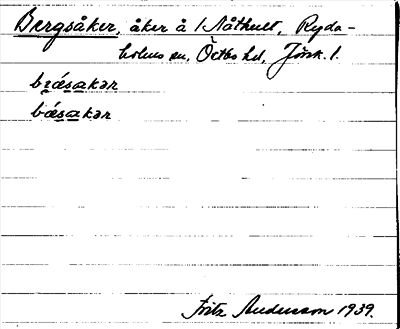 Bergsåker, åker å 1 Nåthult, Ryda-
holms sn, Östbo hd, Jönk. l.
bæ̀sakər
bæ̀sakər
Fritz Andersson 1939.